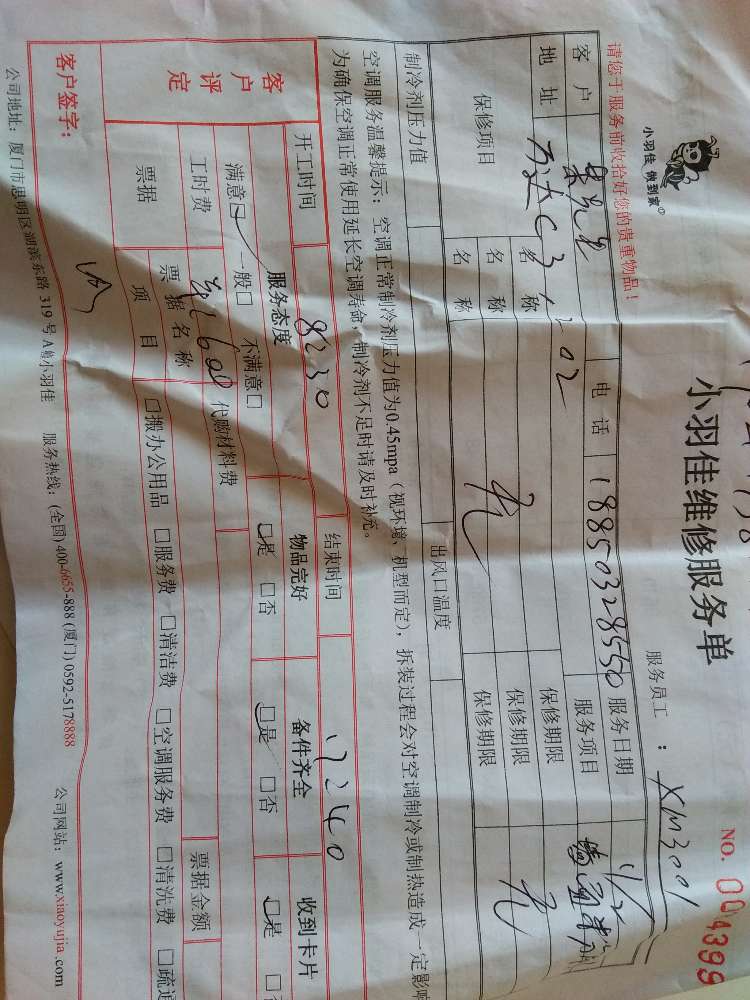 小羽佳 做到家
小羽佳维修服务单
NO. 004399
服务员工: XM3001
请您于服务前收拾好您的贵重物品!
客户 电话 18850328550 服务日期 11/2
地址 万达C3 202 服务项目
保修项目 名称 保修期限
名称 无 保修期限 无
名称 保修期限
制冷剂压力值 出风口温度
空调服务温馨提示: 空调正常制冷剂压力值为0.45mpa(视环境、机型而定), 拆装过程会对空调制冷或制热造成一定影响
为确保空调正常使用延长空调寿命, 制冷剂不足时请及时补充。
开工时间 8230 结束时间 1240
客户评定 服务态度 物品完好 备件齐全 收到卡片
满意☑ 一般□ 不满意□ ☑是 □否 ☑是 □否 ☑是 □否
工时费 600 代购材料费
票据 票据名称 票据金额
项目 □搬办公用品 □服务费 □清洁费 □空调服务费 □清洗费 □疏通
客户签字:
公司地址: 厦门市思明区湖滨东路319号A幢小羽佳 服务热线: (全国) 400-6655-888 (厦门) 0592-5178888 公司网站: www.xiaoyujia.com